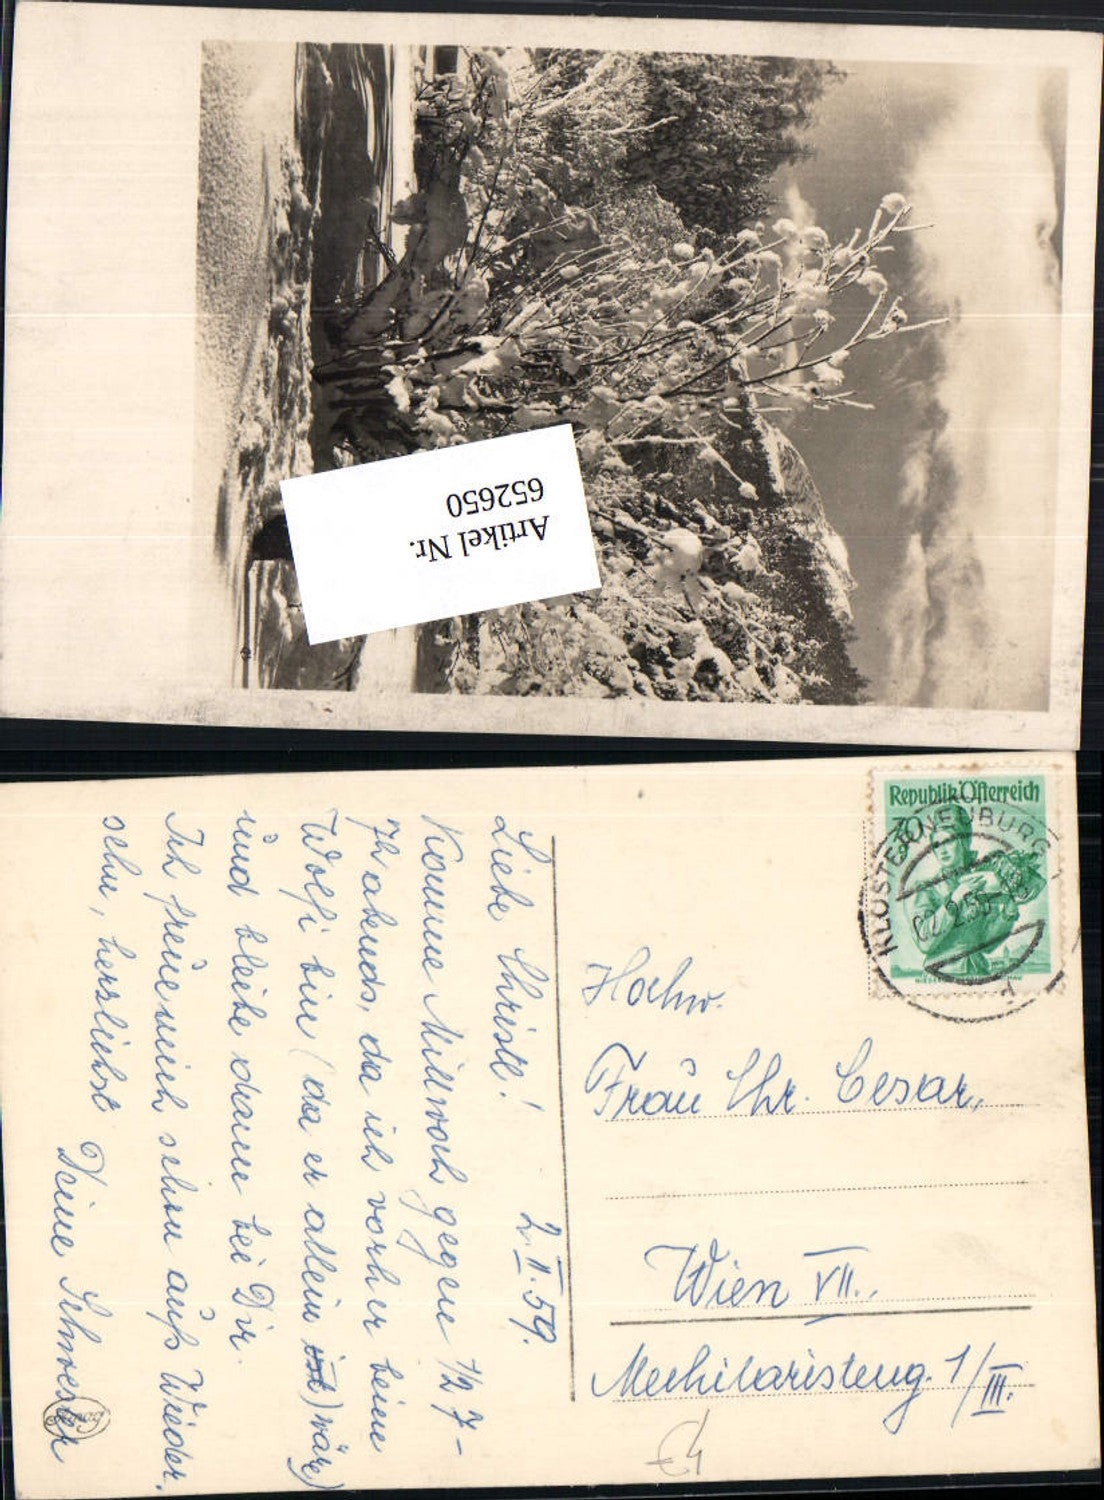 Artikel Nr.
652650
Republik Österreich
KLOSTERNEUBURG
02.2.59
Liebe Christl!
2.II.59.
Komme Mittwoch gegen 1/2 7-
7h abends, da ich vorher beim
Wolfi bin (da er allein ist) wäre)
und bleibe dann bei Dir.
Ich freue mich schon aufs Wieder-
sehn, herzliebst
Deine Schwester
Hochw.
Frau Chr. Cesar,
Wien VII.,
Mechitaristeng. 1/III.